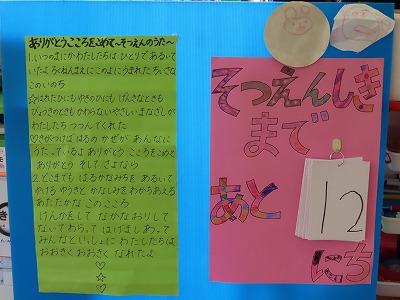 ありがとうこころをこめて〜そつえんのうた〜
1.いつのまにかわたしたちは ひとりであるいて
いたよ ちくねんまえにこのよにうまれた ちいさな
このいのち
☆はれたひにも ゆきのひにも げんきなときも
びょうきのときも かわらないやさしいまなざしが
わたしたち つつんでくれた
♡きがつけば はるの かぜが あんなに
うたっているよ ありがとう こころをこめて
ありがとう そして さよなら
2.どこまでも はるかなみちを あるいて
ゆける ゆうきと かなしみを わかちあえる
あたたかな このこころ
けんかをして なかなおりして
ないて わらって はげましあって
みんなといっしょに わたしたちは
おおきく おおきく なれたよ
♡
☆
♡
そつえんしき
まで
あと
12
にち